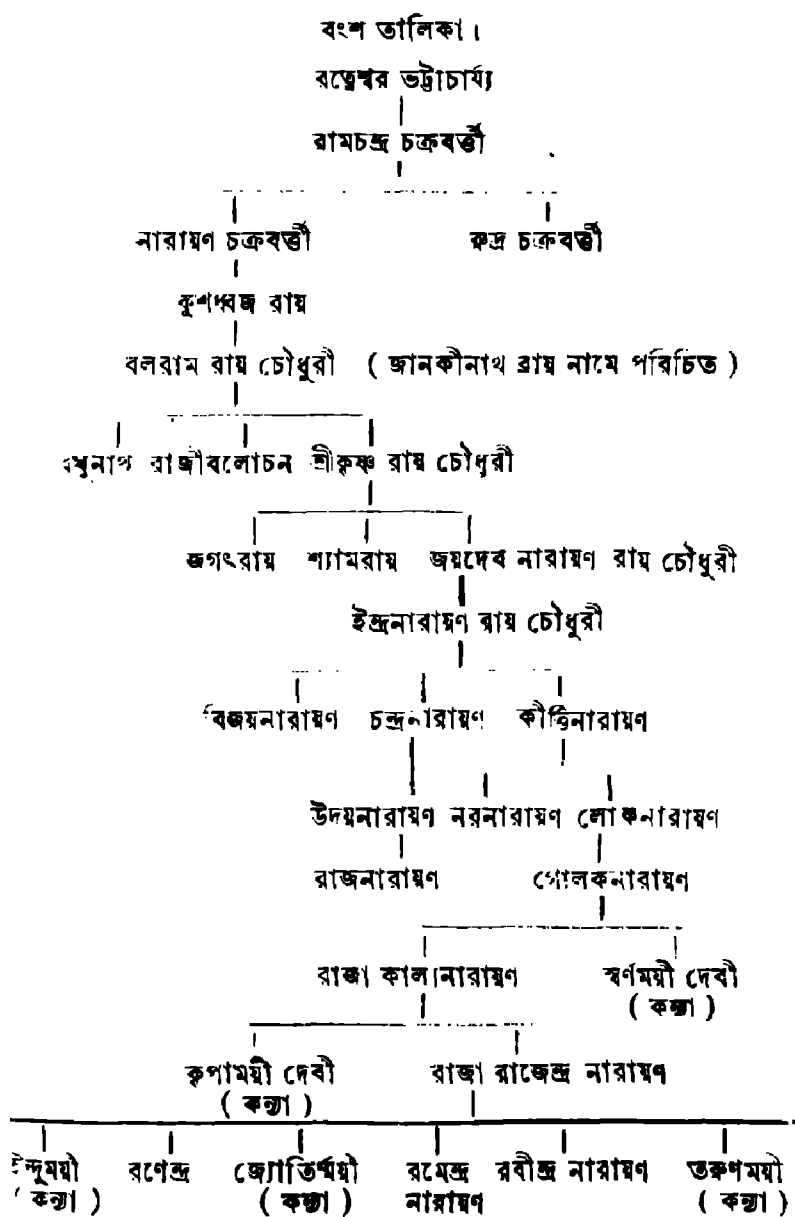 বংশ তালিকা।
রত্নেশ্বর ভট্টাচার্য্য
রামচন্দ্র চক্রবর্ত্তী
নারায়ণ চক্রবর্ত্তী রুদ্র চক্রবর্ত্তী
কুশধ্বজ রায়
বলরাম রায় চৌধুরী ( জানকীনাথ রায় নামে পরিচিত )
রাজীবলোচন শ্রীকৃষ্ণ রায় চৌধুরী
জগৎরায় শ্যামরায় জয়দেব নারায়ণ রায় চৌধুরী
ইন্দ্রনারায়ণ রায় চৌধুরী
বিজয়নারায়ণ চন্দ্রনারায়ণ কীর্ত্তিনারায়ণ
উদয়নারায়ণ নরনারায়ণ লোকনারায়ণ
রাজনারায়ণ গোলকনারায়ণ
রাজা কালীনারায়ণ স্বর্ণময়ী দেবী
( কন্যা )
কৃপাময়ী দেবী রাজা রাজেন্দ্র নারায়ণ
( কন্যা )
ইন্দুময়ী রণেন্দ্র জ্যোতির্ম্ময়ী রমেন্দ্র রবীন্দ্র নারায়ণ তরুণময়ী
( কন্যা ) ( কন্যা ) নারায়ণ ( কন্যা )